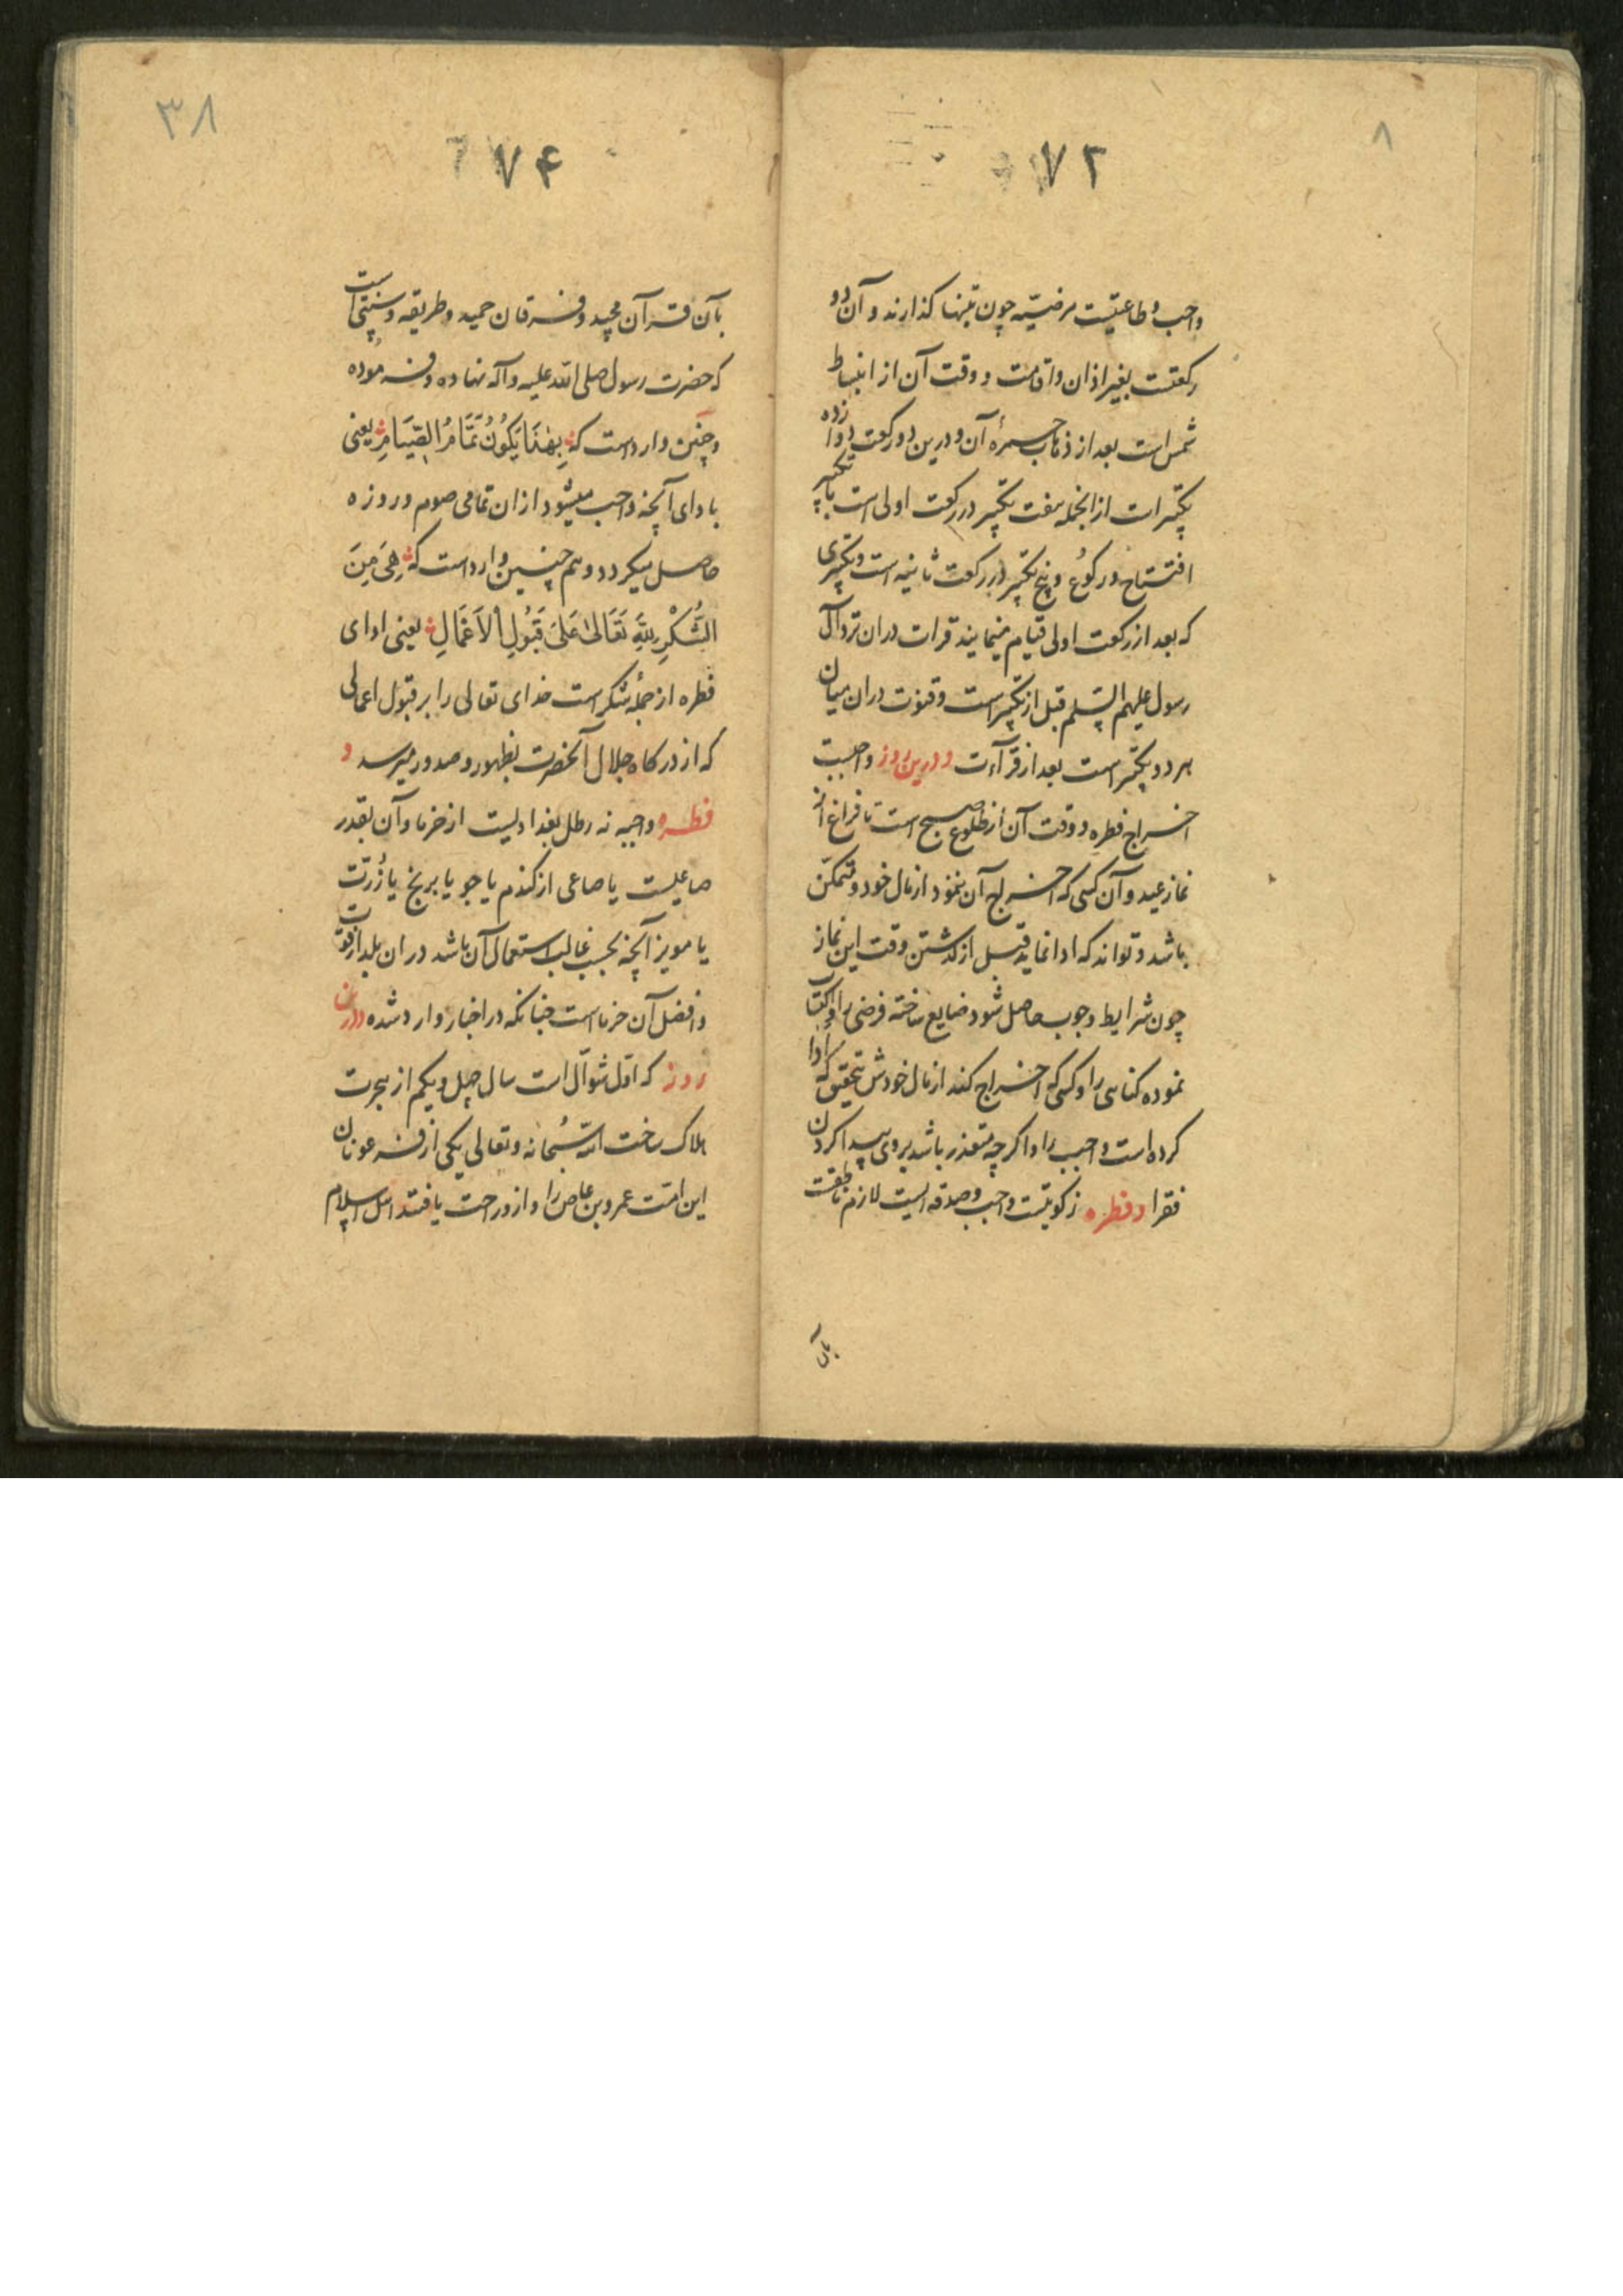 ۸
۷۲
واجب و طاعتیست مرضیّه چون بتنها کذارند و آن دو
رکعتست بغیر اذان و اقامت و وقت آن از انبساط
شمس است بعد از ذهاب حمرهٔ آن و درین دو رکعت دوازده
تکبیرات از انجمله هفت تکبیر در رکعت اولی است با تکبیر
افتتاح و رکوع و پنج تکبیر در رکعت ثانیه است و تکبیری
که بعد از رکعت اولی قیام مینمایند قرات دران نزد آل
رسول علیهم السلم قبل از تکبیر است و قنوت دران میان
هر دو تکبیر است بعد از قرآءت و درین روز واجبست
اخراج فطره و وقت آن از طلوع صبح است تا فراغ از
نماز عید و آن کسی که اخراج آن ننمود از مال خود و متمکن
باشد و تواند که ادا نماید قبل از گذشتن وقت این نماز
چون شرایط وجوب حاصل شود ضایع ساخته فرضی را و اکتساب
نموده کناهی را و کسی که اخراج کند از مال خودش بتحقیق که ادا
کرده است واجب را و اکرچه متعذر باشد بر وی پیدا کردن
فقرا و فطره زکوتیست واجب و صدقه ایست لازم ناطقست
بآن
۳۸
۷۴
بآن قرآن مجید و فرقان حمید و طریقه و سنتی است
که حضرت رسول صلی الله علیه و آله نهاده و فرموده
و چنین وارداست که بِهٰذَا یَکُونُ تَمَامُ الصِّیَامِ یعنی
با دای آنچه واجب میشود ازان تمامی صوم و روزه
حاصل میکردد و هم چنین وارداست که هِیَ مِنَ
الشُّکْرِ لِلّٰهِ تَعَالیٰ عَلیٰ قَبُولِ الْاَعْمَالِ یعنی ادای
فطره از جملهٔ شکر است خدای تعالی را بر قبول اعمالی
که از درکاه جلال آنحضرت بظهور و صدور میرسد و
فطره واجبه نه رطل بغدادیست از خرما و آن بقدر
صاعیست یا صاعی از کندم یا جو یا برنج یا ذُرّت
یا مویز آنچه بحسب غالب استعمال آن باشد دران بلد از قوت
و افضل آن خرماست چنانکه در اخبار وارد شده و درین
روز که اوّل شوّال است سال چهل و یکم از هجرت
هلاک ساخت الله سُبحانه و تعالی یکی از فرعونان
این امّت عمرو بن عاص را و ازو راحت یافتند اهل اسلام